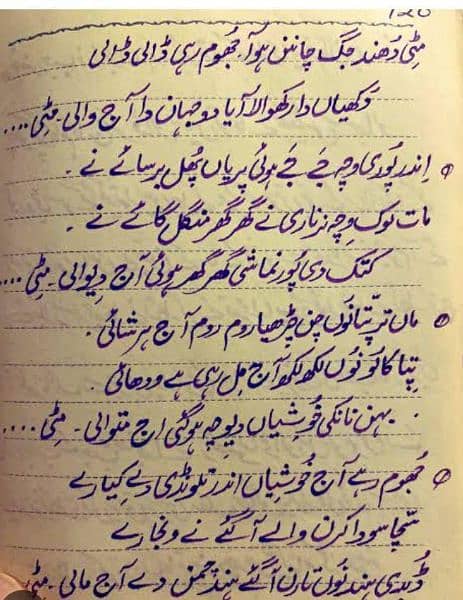 120
مٹی دُھند جگ چانن ہوآ۔ جُھوم رہی ڈالی ڈالی
دُکھیاں دا رکھوالا آیا دوجہان دا آج والی۔ مٹی....
اِندر پُوری وِچہ جَے جَے ہوئی پریاں پُھل برسائے نے۔
مات لوک وِچہ نرناری نے گھر گھر منگل گائے نے۔
کتک دی پُورنماشی گھر گھر ہوئی آج دِیوالی۔ مٹی....
ماں ترپتا نُوں چن چڑھیا روم روم آج ہرشائی۔
پِتا کالُو نُوں لکھ لکھ آج مِل رہی ہے ودھائی۔
بہن نانکی خُوشیاں دیوچہ ہوگئی اج متوالی۔ مٹی....
جُھوم رہے آج خُوشیاں اندر تلونڈی دے کیارے
سّچا سودا کرن والے آگئے نے ونجارے
ڈُبدی ہِند نُوں تارن آگئے ہِند چمن دے آج مالی۔ مٹی